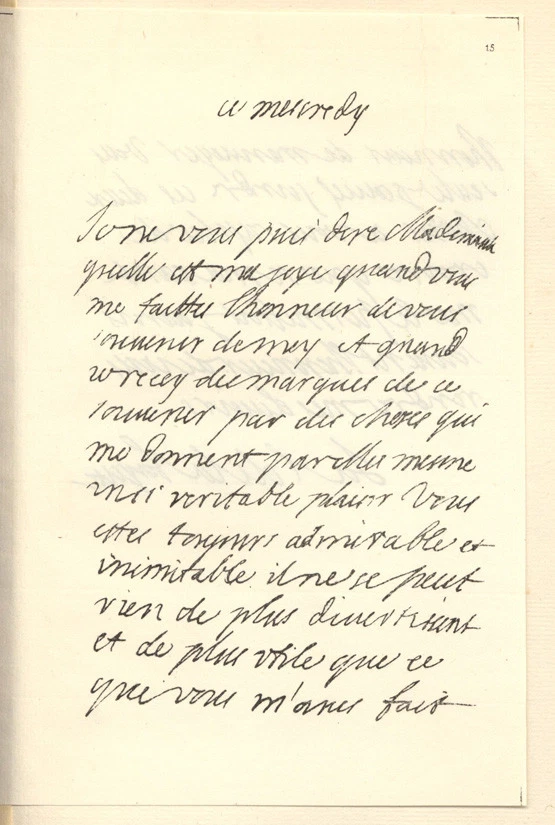 15
ce mescredy
Je ne vous puis dire Mademoiselle
quelle est ma joye quand vous
me faittes lhonneur de vous
souuenir de moy et quand
je recoy des marques de ce
souuenir par des choses qui
me donnent par elles mesme
un si veritable plaisir Vous
estes toujours admirable et
inimitable il ne se peut
rien de plus diuertisant
et de plus vtile que ce
que vous m'aues fait